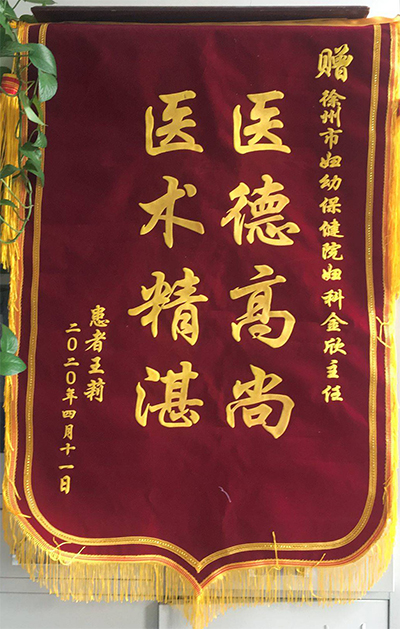 赠徐州市妇幼保健院妇科金欣主任
医德高尚
医术精湛
患者王莉
二〇二〇年四月十一日